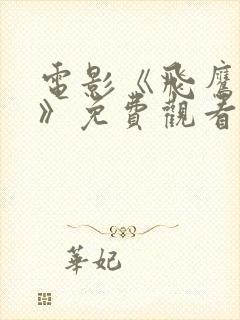 電影《飛鷹
》免費觀看
華妃